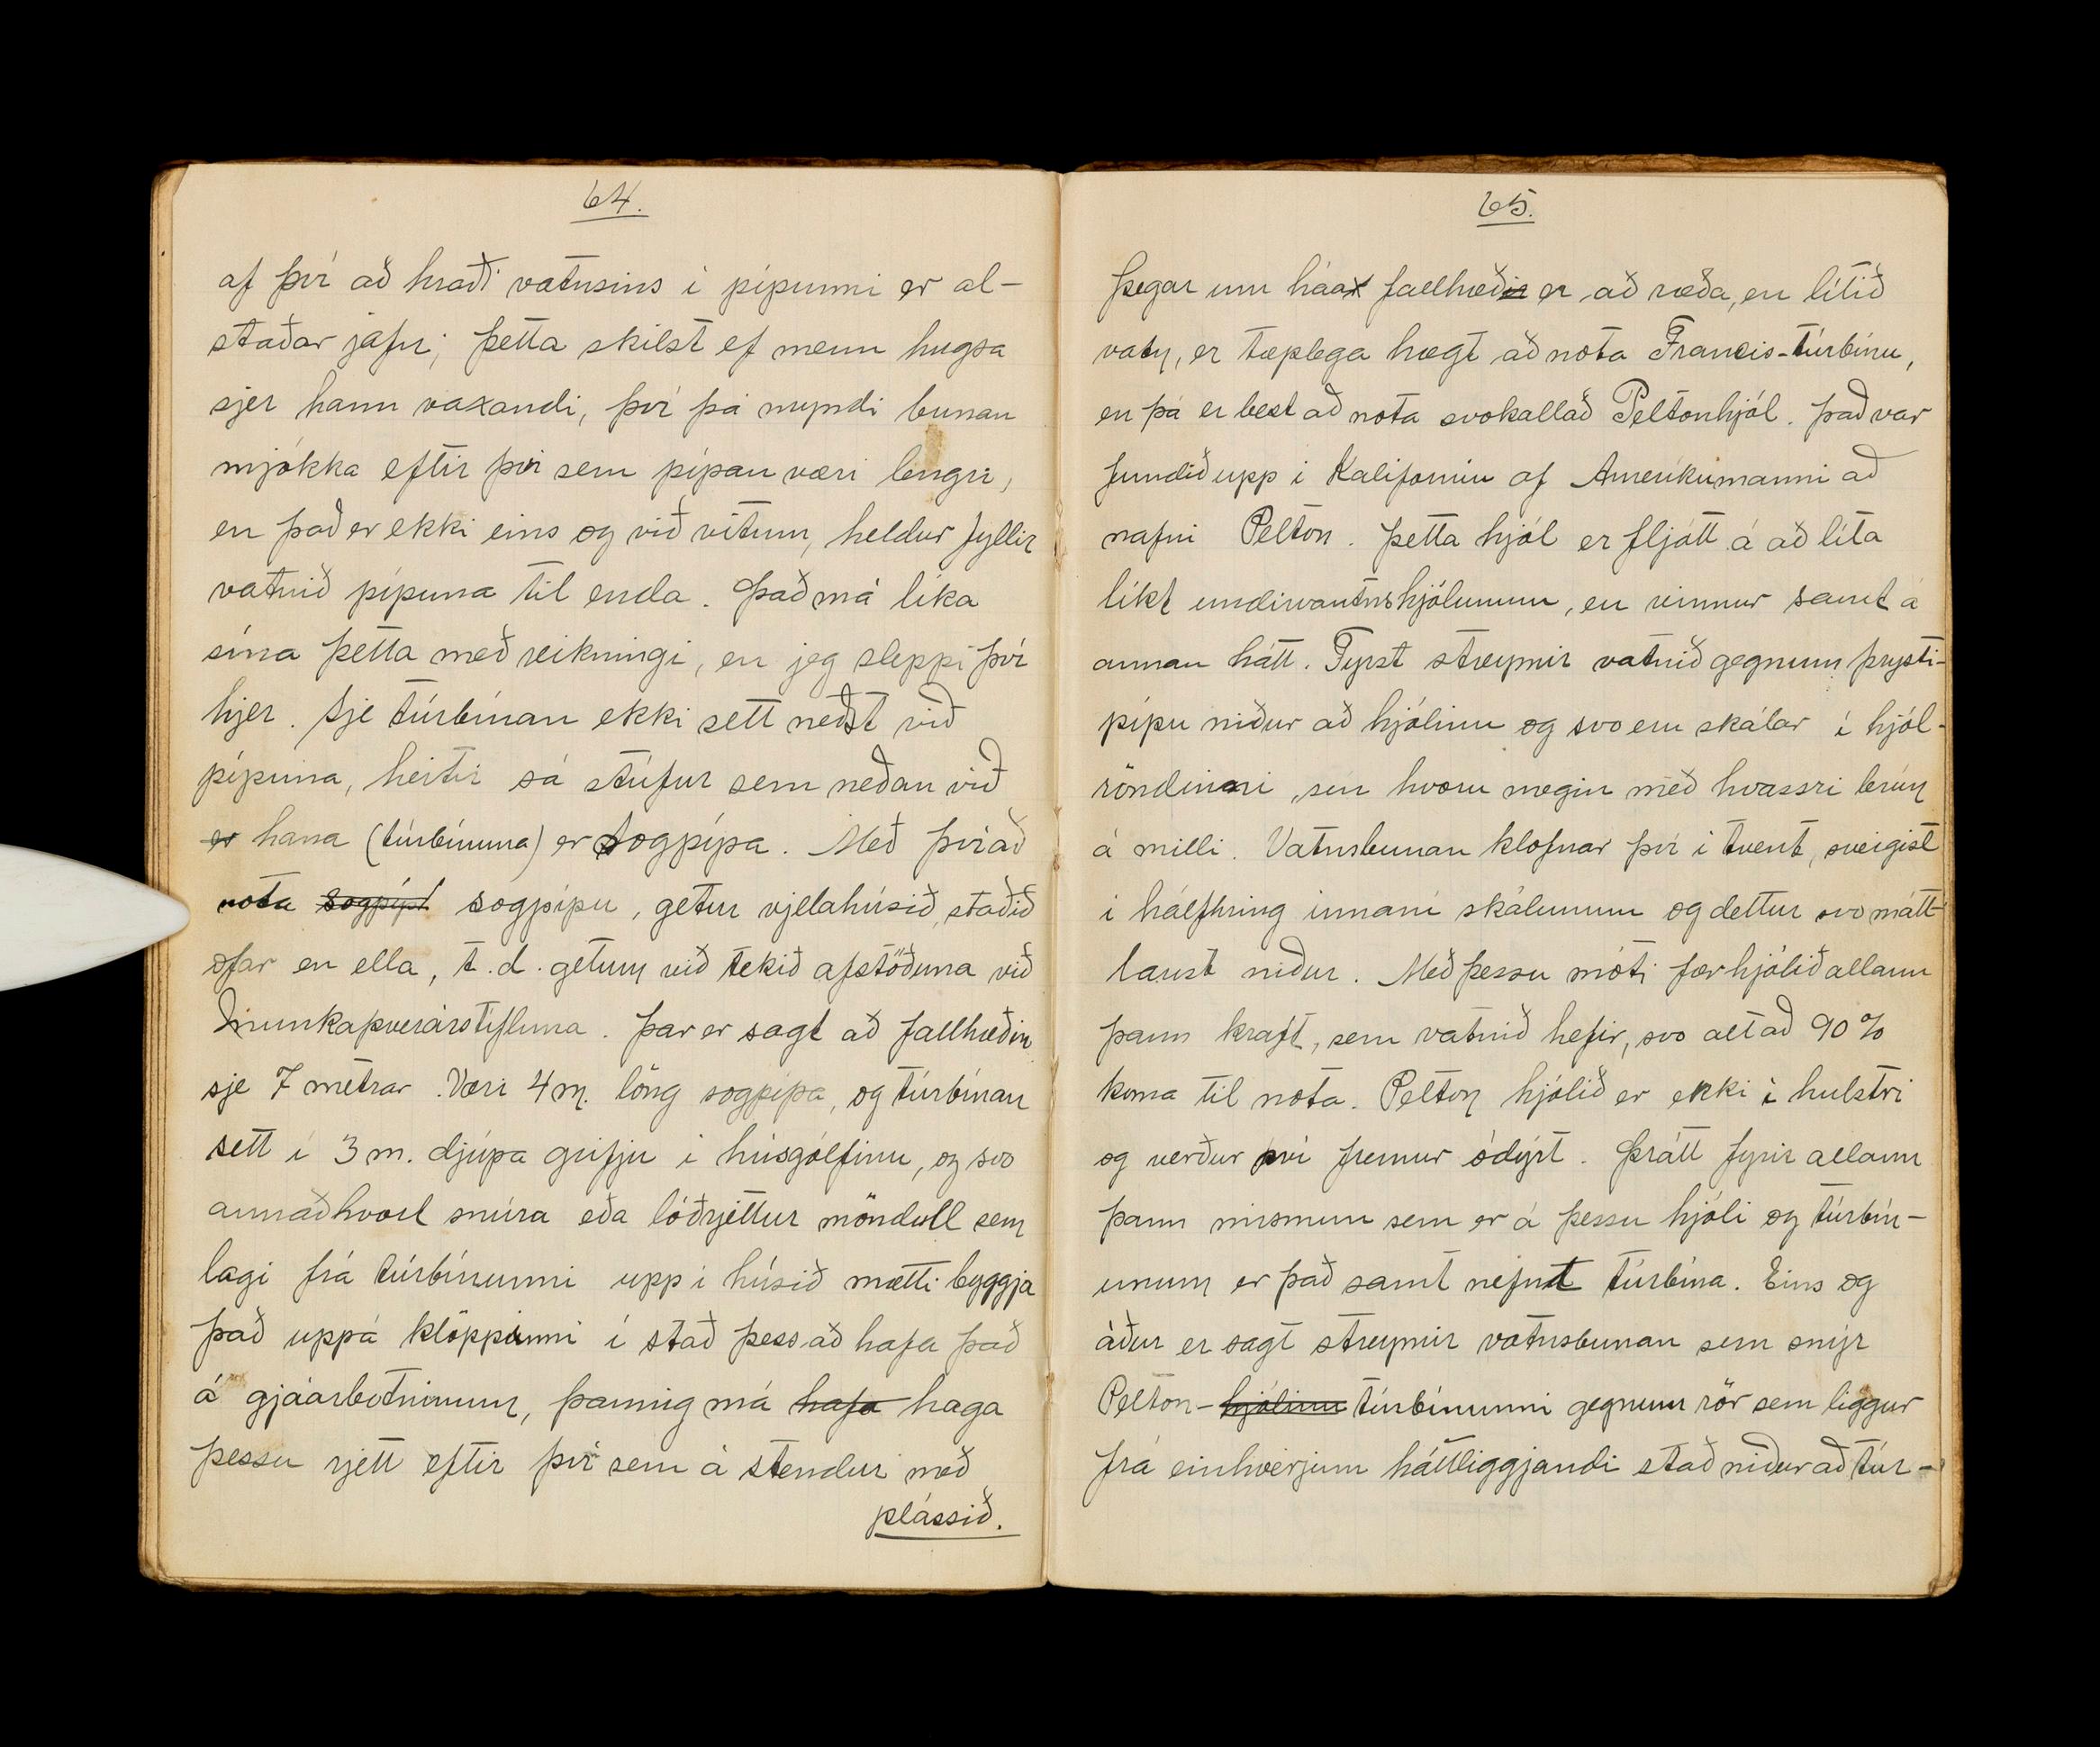 64.
af því að hraði vatnsins i pípunni er al-
staðar jafn; þetta skilst ef menn hugsa
sjer hann vaxandi, því þá myndi bunan
mjókka eftir því sem pípan væri lengri,
en það er ekki eins og við vitum, heldur fyllir
vatnið pípuna til enda. Það má líka
sína þetta með reikningi, en jeg sleppi því
hjer. Sje túrbínan ekki sett neðst við
pípuna, heitir sá stúfur sem neðan við
er hana (túrbínuna) er sogpípa. Með því að
nota sogpípu, getur vjelahúsið staðið
ofar en ella, t.d. getum við tekið afstöðuna við
Munkaþverárstífluna. Þar er sagt að fallhæðin
sje 7 metrar. Væri 4 m. löng sogpípa, og túrbínan
sett í 3 m. djúpa grifju i húsgólfinu, og svo
annaðhvort snúra eða lóðrjettur möndull sem
lagi frá túrbínunni upp i húsið mætti byggja
það uppá klöppinni í stað þess að hafa það
á gjáarbotninum, þannig má hafa haga
þessu rjett eftir því sem á stendur með
plássið.
65.
Þegar um háa fallhæð er að ræða, en lítið
vatn, er tæplega hægt að nota Francis-túrbínu,
en þá er best að nota svokallað Peltonhjól. Það var
fundið upp i Kaliforniu af Ameríkumanni að
nafni Pelton. Þetta hjól er fljótt á að líta
líkt undirvantnshjólunum, en vinnur samt á
annan hátt. Fyrst streymir vatnið gegnum þrysti-
pípu niður að hjólinu og svo eru skálar í hjól-
röndinni, sín hvoru megin með hvassri brún
á milli. Vatnsbunan klofnar því i tvent, sveigist
i hálfhring innaní skálunum og dettur svo mátt-
laust niður. Með þessu móti fær hjólið allann
þann kraft, sem vatnið hefir, svo alt að 90%
koma til nota. Pelton hjólið er ekki i hulstri
og verður því fremur ódýrt. Þrátt fyrir allann
þann mismun sem er á þessu hjóli og túrbín-
unum er það samt nefnt túrbína. Eins og
áður er sagt streymir vatnsbunan sem snýr
Pelton- hjólinu túrbínunni gegnum rör sem liggur
frá einhverjum háttliggjandi stað niður að túr-